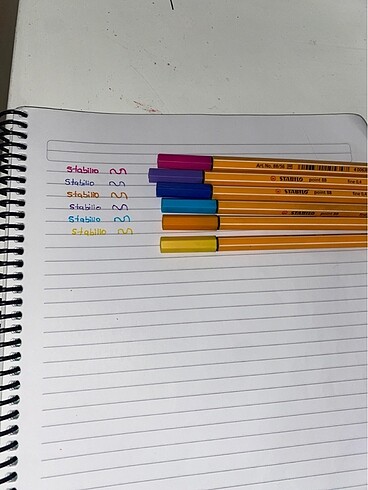 Stabillo
Stabilo
Stabillo
Stabilo
Stabillo
Stabillo
Art.No. 88/56
STABILO point 88
STABILO point 88
STABILO point 88